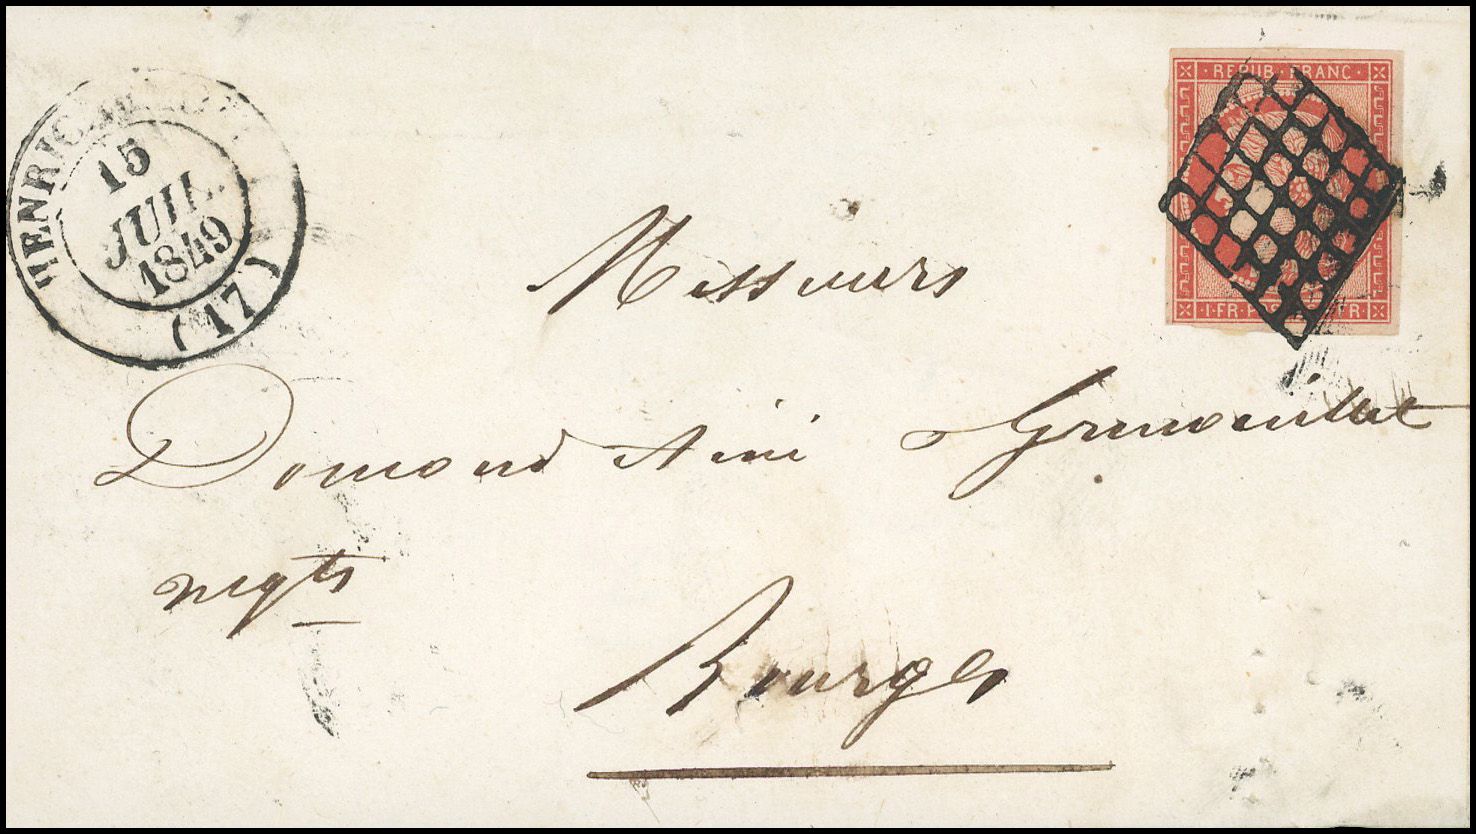 HENRIC
15
JUIL.
1849
(17)
REPUB. FRANC.
1. FR. P
Messieurs
Domond Ainé Grenouillet
negts
Bourges